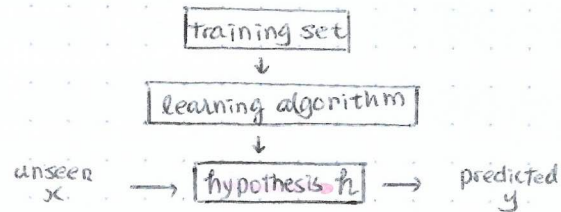 training set
↓
learning algorithm
↓
unseen x → hypothesis h → predicted y